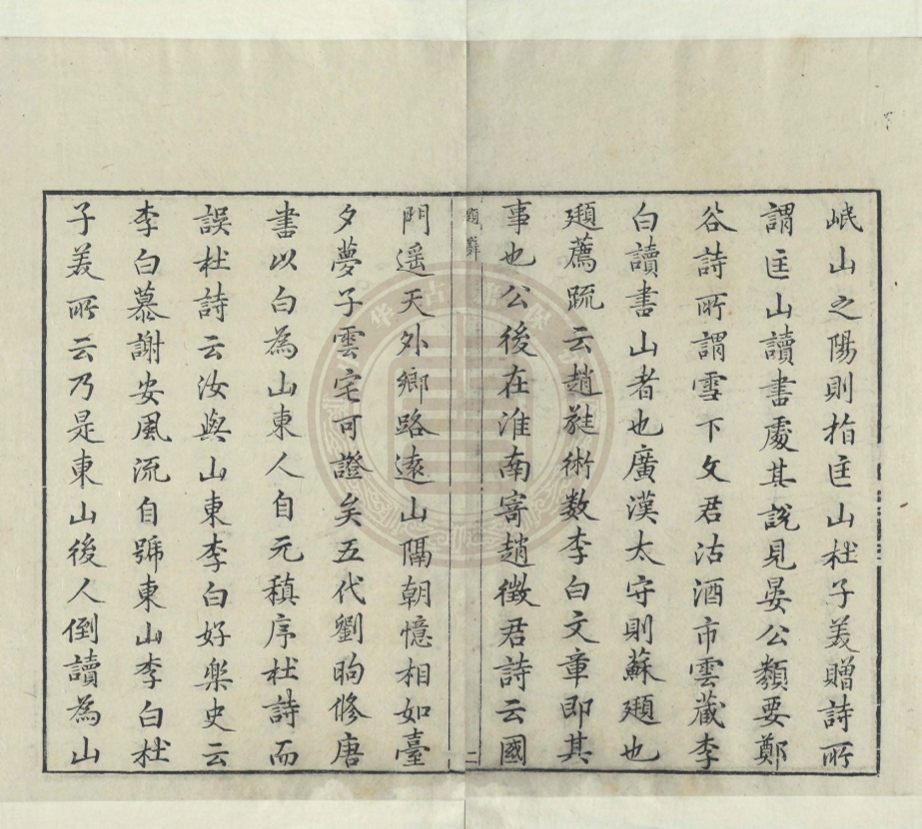 岷山之陽則指匡山杜子美贈詩所
謂匡山讀書處其說見晏公類要鄭
谷詩所謂雪下文君沽酒市雲藏李
白讀書山者也廣漢太守則蘇頲也
頲薦疏云趙蕤術数李白文章即其
事也公後在淮南寄趙徵君詩云國
門遥天外鄉路遠山隔朝憶相如臺
夕夢子雲宅可證矣五代劉昫修唐
書以白為山東人自元稹序杜詩而
誤杜詩云汝與山東李白好樂史云
李白慕謝安風流自號東山李白杜
子美所云乃是東山後人倒讀為山
二